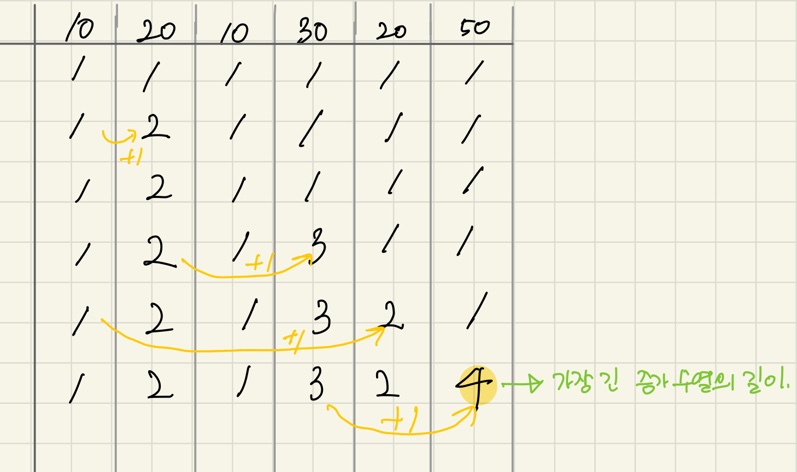 10 20 10 30 20 50
1 1 1 1 1 1
1 2 1 1 1 1
+1
1 2 1 1 1 1
1 2 1 3 1 1
+1
1 2 1 3 2 1
+1
1 2 1 3 2 4 → 가장 긴 증가 수열의 길이.
+1